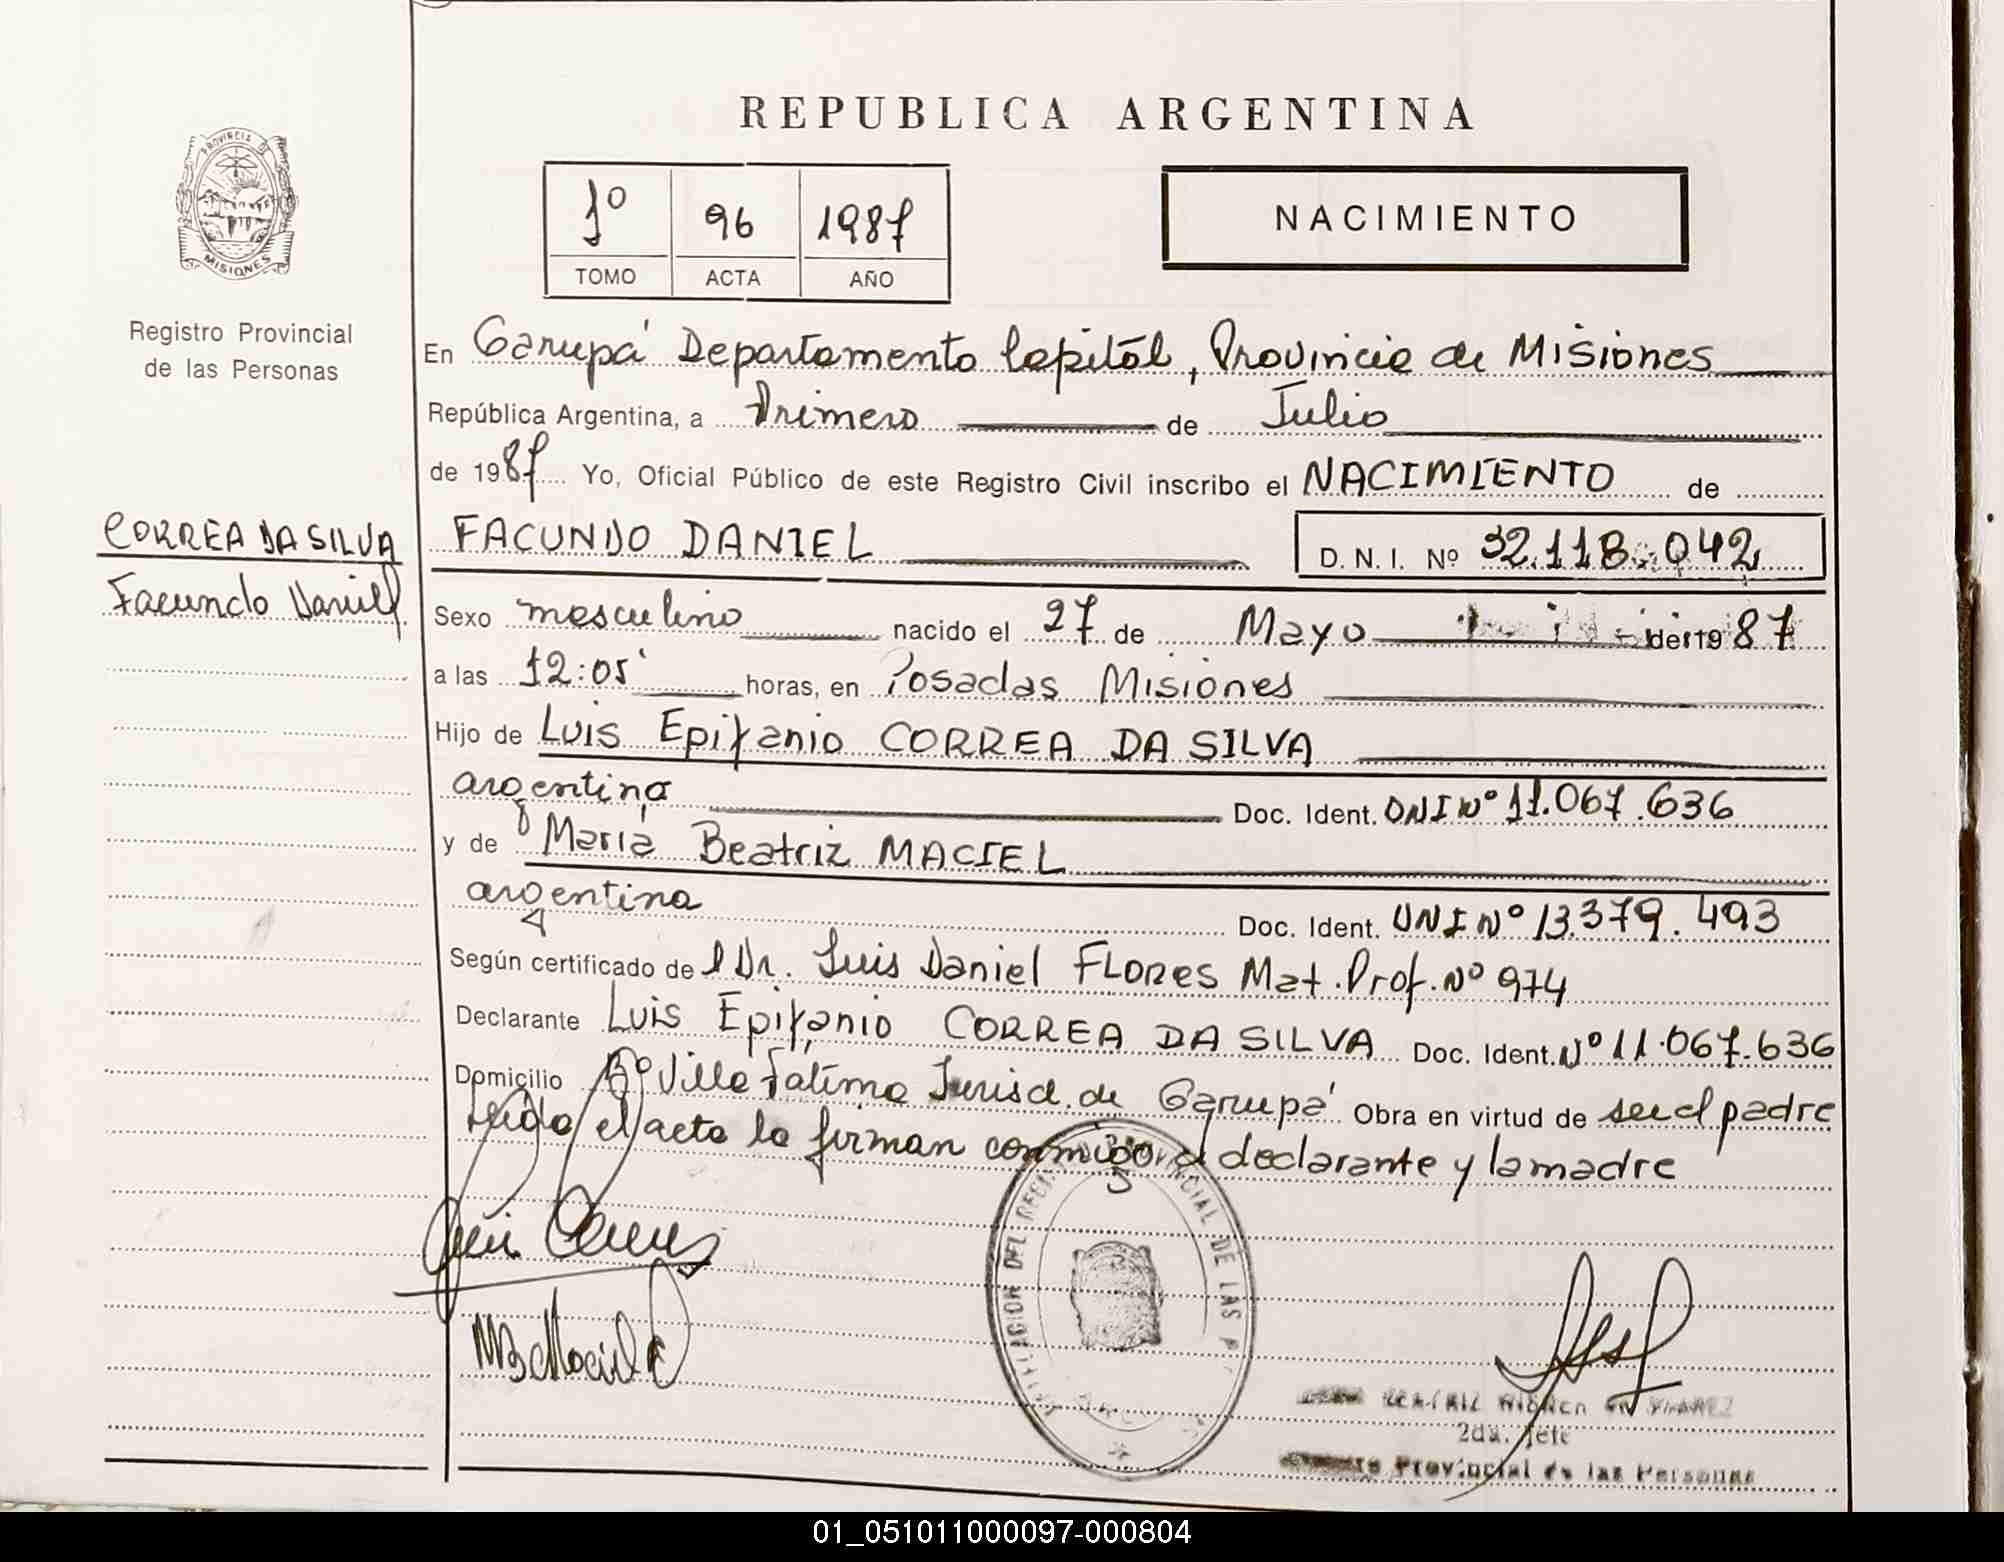 REPUBLICA ARGENTINA
PROVINCIA D
MISIONES
1º 96 1987
TOMO ACTA AÑO
NACIMIENTO
Registro Provincial
de las Personas
En Garupá Departamento Capital, Provincia de Misiones
República Argentina, a Primero de Julio
de 1987 Yo, Oficial Público de este Registro Civil inscribo el NACIMIENTO de
CORREA DA SILVA
Facundo Daniel
FACUNDO DANIEL D.N.I. Nº 32.118.042
Sexo masculino nacido el 27 de Mayo de 1987
a las 12:05' horas, en Posadas Misiones
Hijo de Luis Epifanio CORREA DA SILVA
argentina Doc. Ident. DNI Nº 11.067.636
y de María Beatriz MACIEL
argentina Doc. Ident. DNI Nº 13.379.493
Según certificado del Dr. Luis Daniel FLORES Mat. Prof. Nº 974
Declarante Luis Epifanio CORREA DA SILVA Doc. Ident. Nº 11.067.636
Domicilio Bº Villa Fátima Jurisd. de Garupá Obra en virtud de ser el padre
Leída el acta la firman conmigo el declarante y la madre
DEL REGISTRO PROVINCIAL DE LAS P
2da. Jefe
Provincial de las Personas
01_051011000097-000804